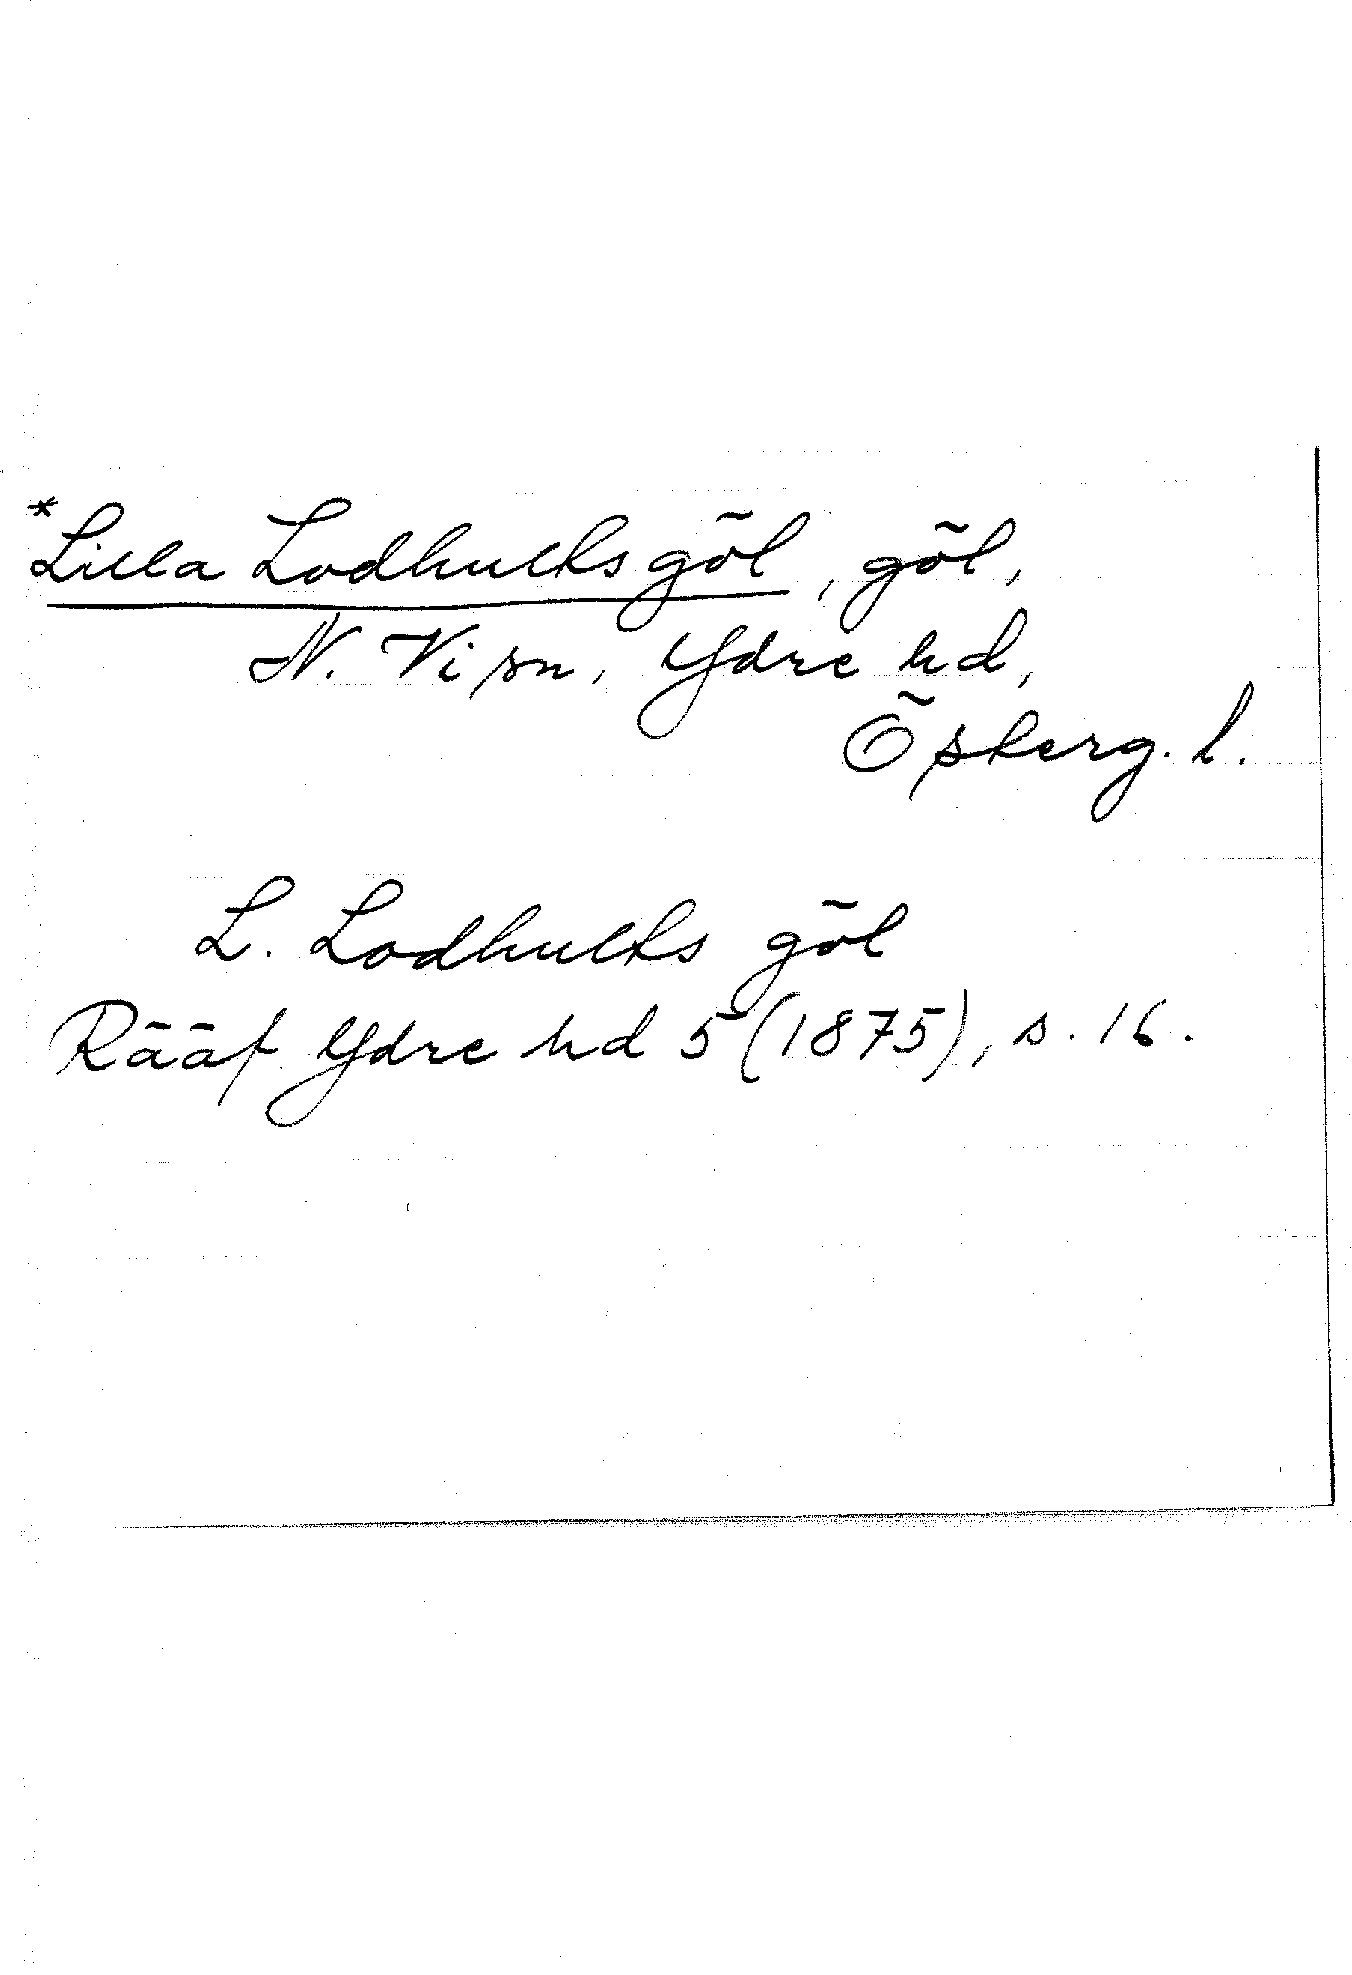 *Lilla Lodhultsgöl, göl,
N. Vi sn, Ydre hd,
Österg. l.
L. Lodhults göl
Rääf Ydre hd 5 (1875), s. 16.